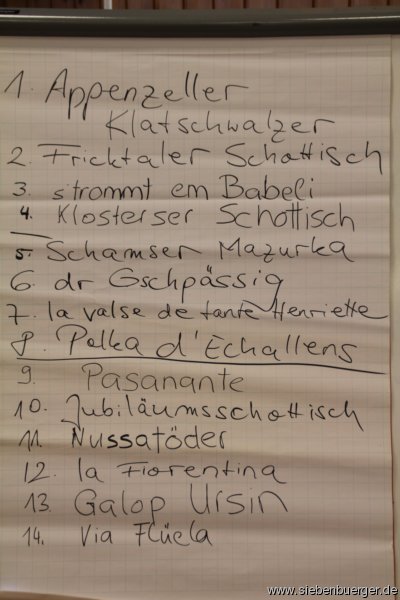 1. Appenzeller
Klatschwalzer
2. Fricktaler Schottisch
3. strommt em Babeli
4. Klosterser Schottisch
5. Schamser Mazurka
6. dr Gschpässig
7. la valse de tante Henriette
8. Polka d'Echallens
9. Pasanante
10. Jubiläumsschottisch
11. Nussatöder
12. la Fiorentina
13 Galop Ursin
14. Via Flüela
www.siebenbuerger.de